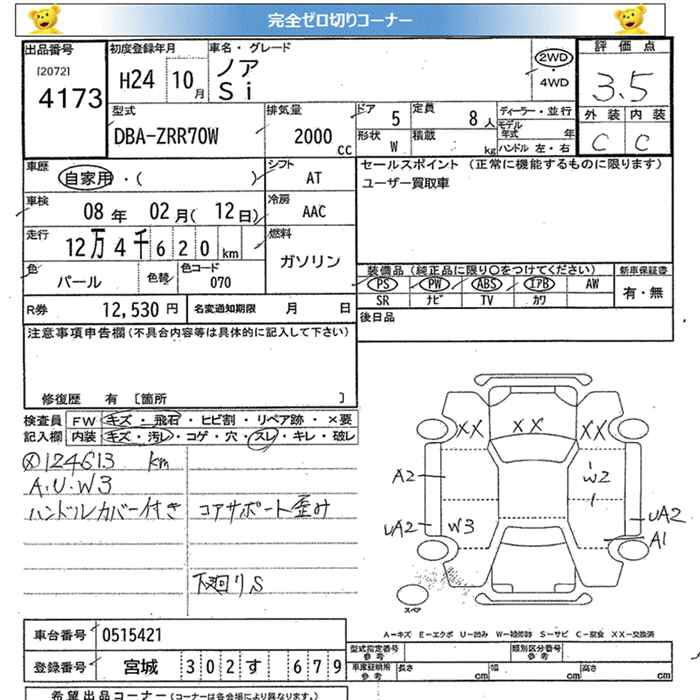 完全ゼロ切りコーナー
出品番号
[2072]
4173
初度登録年月
H24 10月
車名・グレード
ノア
Si
2WD
・
4WD
評価点
3.5
外装 内装
C C
型式
DBA-ZRR70W
排気量
2000 cc
ドア 5
定員 8人
形状 W
積載 kg
ディーラー・並行
モデル年式 年
ハンドル 左・右
車歴
自家用・( )
シフト AT
車検
08年 02月(12日)
冷房 AAC
走行
12万4千620km
燃料
ガソリン
色 パール
色替
色コード 070
R券 12,530円
名変通知期限 月 日
セールスポイント (正常に機能するものに限ります)
ユーザー買取車
装備品(純正品に限り○をつけてください)
PS PW ABS エアB AW
SR ナビ TV カワ
新車保証書
有・無
後日品
注意事項申告欄(不具合内容等は具体的に記入して下さい)
修復歴 有 [箇所 ]
検査員記入欄
FW キズ・飛石・ヒビ割・リペア跡・×要
内装 キズ・汚レ・コゲ・穴・スレ・キレ・破レ
124613 km
A.U.W3
ハンドルカバー付き
コアサポート歪み
下廻りS
XX XX XX
A2
UA2
W3
W2
UA2
A1
スペア
A-キズ E-エクボ U-凹み W-補修跡 S-サビ C-腐食 XX-交換済
車台番号 0515421
登録番号 宮城 302 す 679
型式指定番号 参考
類別区分番号 参考
車庫証明用 参考
長さ cm
幅 cm
高さ cm
希望出品コーナー(コーナーは各会場により異なります。)